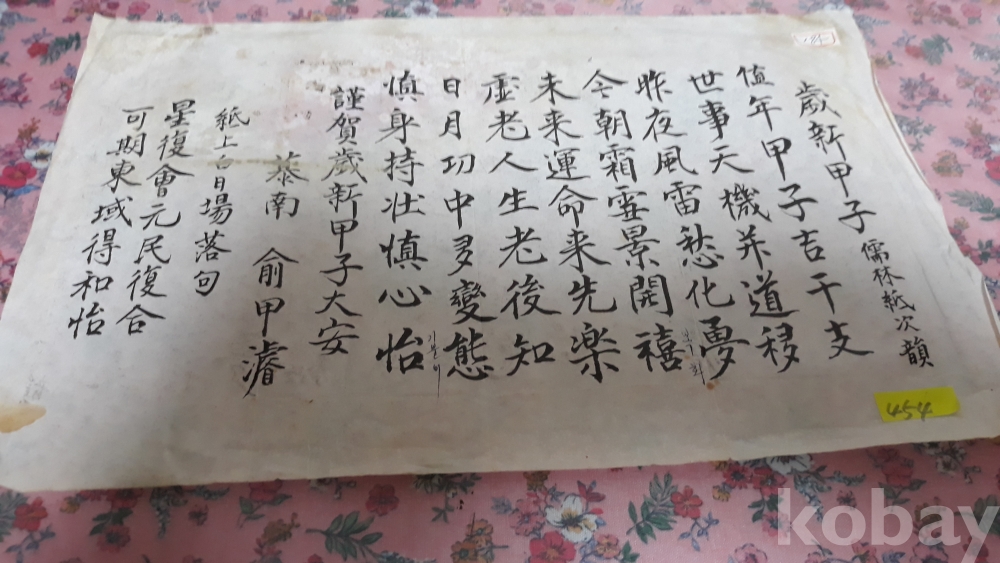 歲新甲子 儒林紙次韻
値年甲子吉干支
世事天機并道移
昨夜風雷愁化夢
今朝霜雪景開禧
未来運命来先楽
虛老人生老後知
日月功中多變態
愼身持壮愼心怡
謹賀歲新甲子大安
南 兪甲濬
紙上白日場落句
星復會元民復合
可期東域得和怡
454
kobay